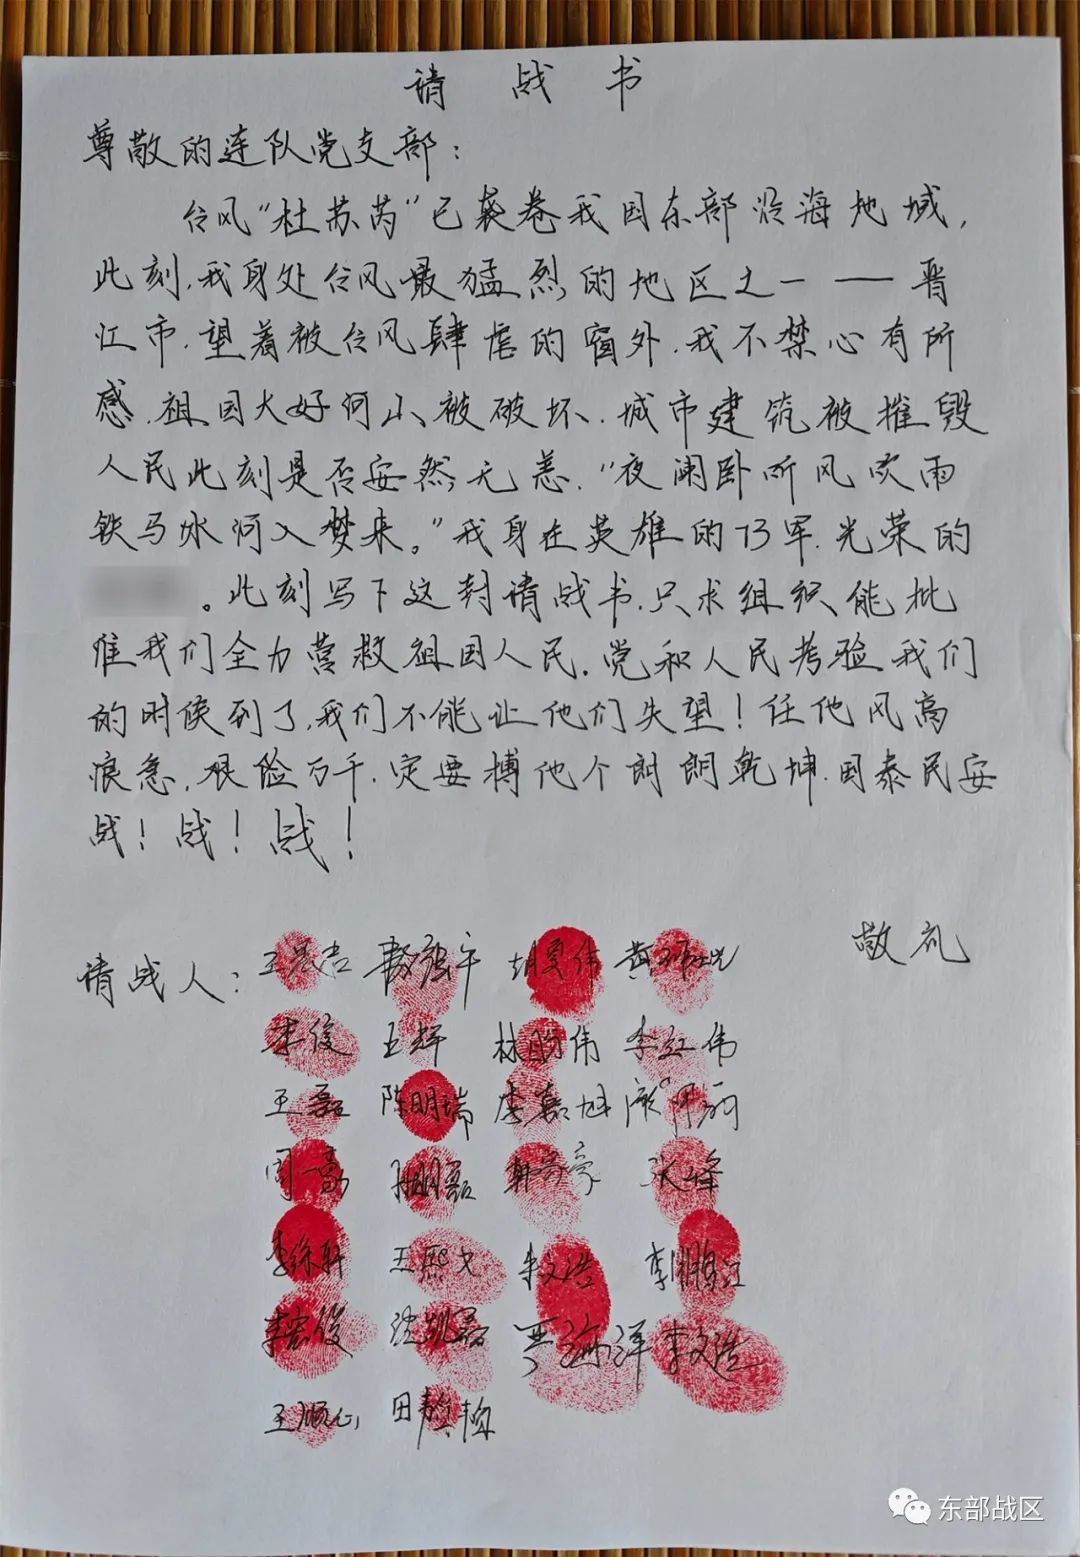 请战书
尊敬的连队党支部：
台风“杜苏芮”已袭卷我国东部沿海地域，
此刻，我身处台风最猛烈的地区之一——晋
江市，望着被台风肆虐的窗外，我不禁心有所
感，祖国大好河山被破坏，城市建筑被摧毁
人民此刻是否安然无恙，“夜阑卧听风吹雨
铁马冰河入梦来。”我身在英雄的73军，光荣的
。此刻写下这封请战书，只求组织能批
准我们全力营救祖国人民，党和人民考验我们
的时候到了，我们不能让他们失望！任他风高
浪急，艰险万千，定要搏他个朗朗乾坤，国泰民安
战！战！战！
敬礼
请战人：
李俊 王辉 李红伟
王磊 陈明瑞 李嘉旭
周豪 张锋
李徐轩 王熙文 朱文浩 李鹏江
李宏俊 沈凯磊 贾海洋 李文浩
王顺心
东部战区